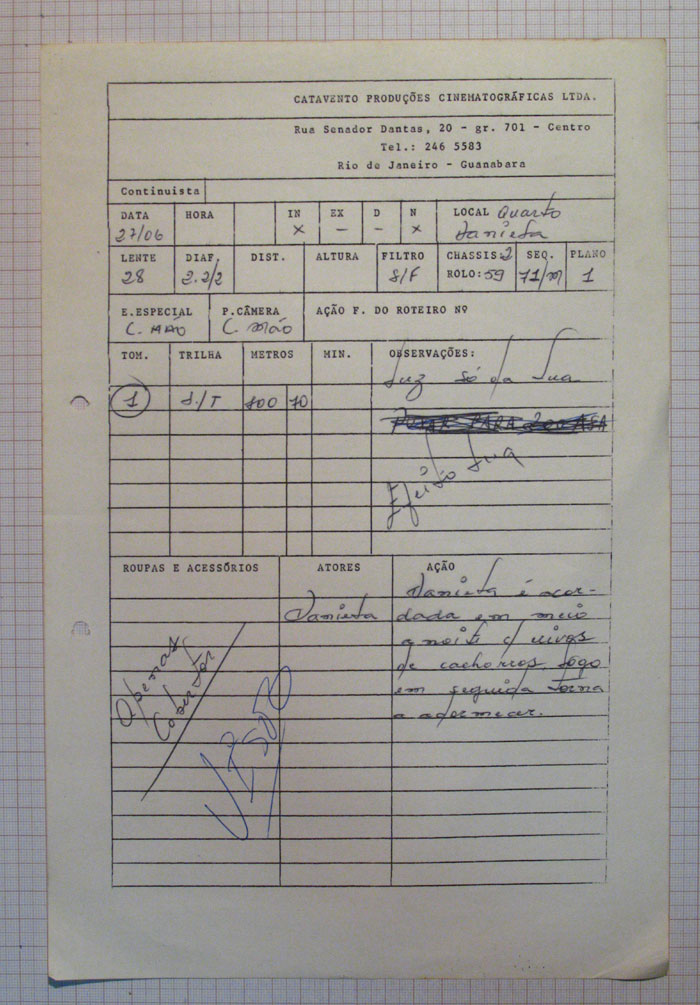 CATAVENTO PRODUÇÕES CINEMATOGRÁFICAS LTDA.
Rua Senador Dantas, 20 - gr. 701 - Centro
Tel.: 246 5583
Rio de Janeiro - Guanabara
Continuista
DATA HORA IN EX D N LOCAL Quarto
27/06 x - - x Danieta
LENTE DIAF. DIST. ALTURA FILTRO CHASSIS: 2 SEQ. PLANO
28 2.2/2 S/F ROLO: 59 71/M 1
E.ESPECIAL P.CÂMERA AÇÃO F. DO ROTEIRO Nº
C. MÃO C. MÃO
TOM. TRILHA METROS MIN. OBSERVAÇÕES:
Luz só da Lua
1 S/T 100 70
Efeito Lua
ROUPAS E ACESSÓRIOS ATORES AÇÃO
Danieta é acor-
Danieta dada em meio
a noite c/ uivos
de cachorros, logo
em seguida torna
a adormecer.
Apenas
Cobertor